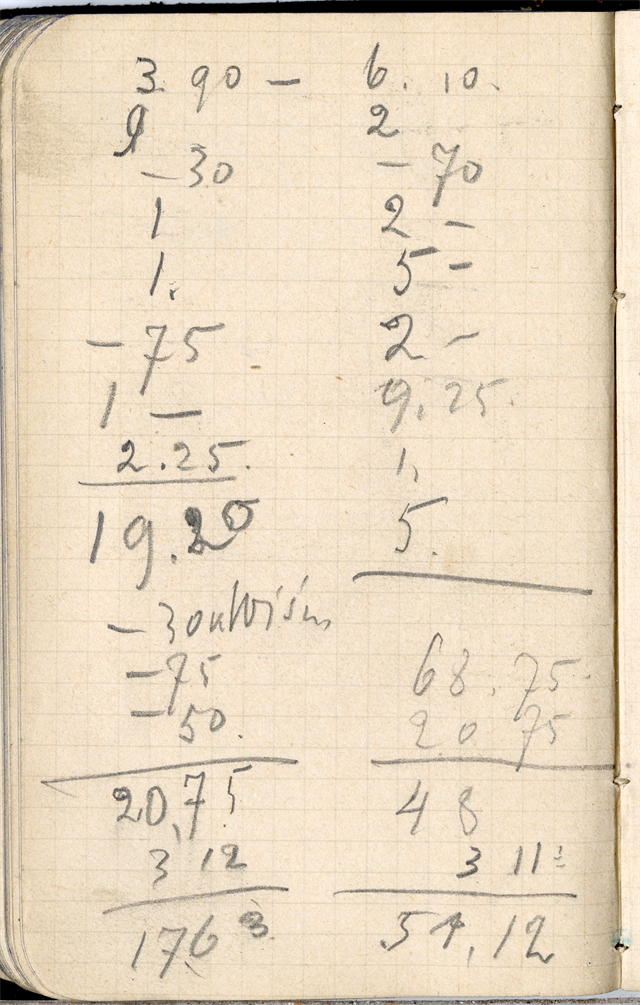 3. 90 –
9
– 30
1
1.
– 75
1 –
2.25.
19.20
– 30
– 75
– 50.
20,75
3 12
17,6 3
6. 10.
2
– 70
2 –
5 –
2 –
9.25.
1.
5.
68.75.
20 75
48
3 11
51,12